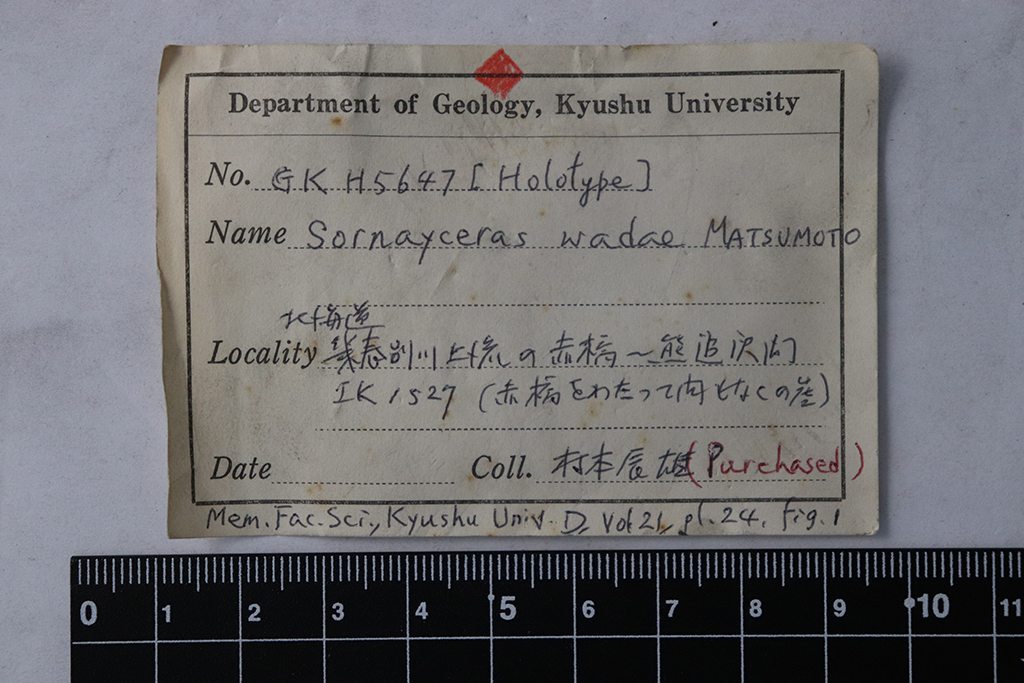 Department of Geology, Kyushu University
No. GK H5647 [Holotype]
Name Sornayceras wadae MATSUMOTO
北海道
Locality 幾春別川上流の赤橋〜熊追沢間
IK 1527 (赤橋をわたって間もなくの崖)
Date Coll. 村本辰雄 (Purchased)
Mem. Fac. Sci., Kyushu Univ. D, Vol 21, pl. 24, fig. 1
0 1 2 3 4 5 6 7 8 9 10 11